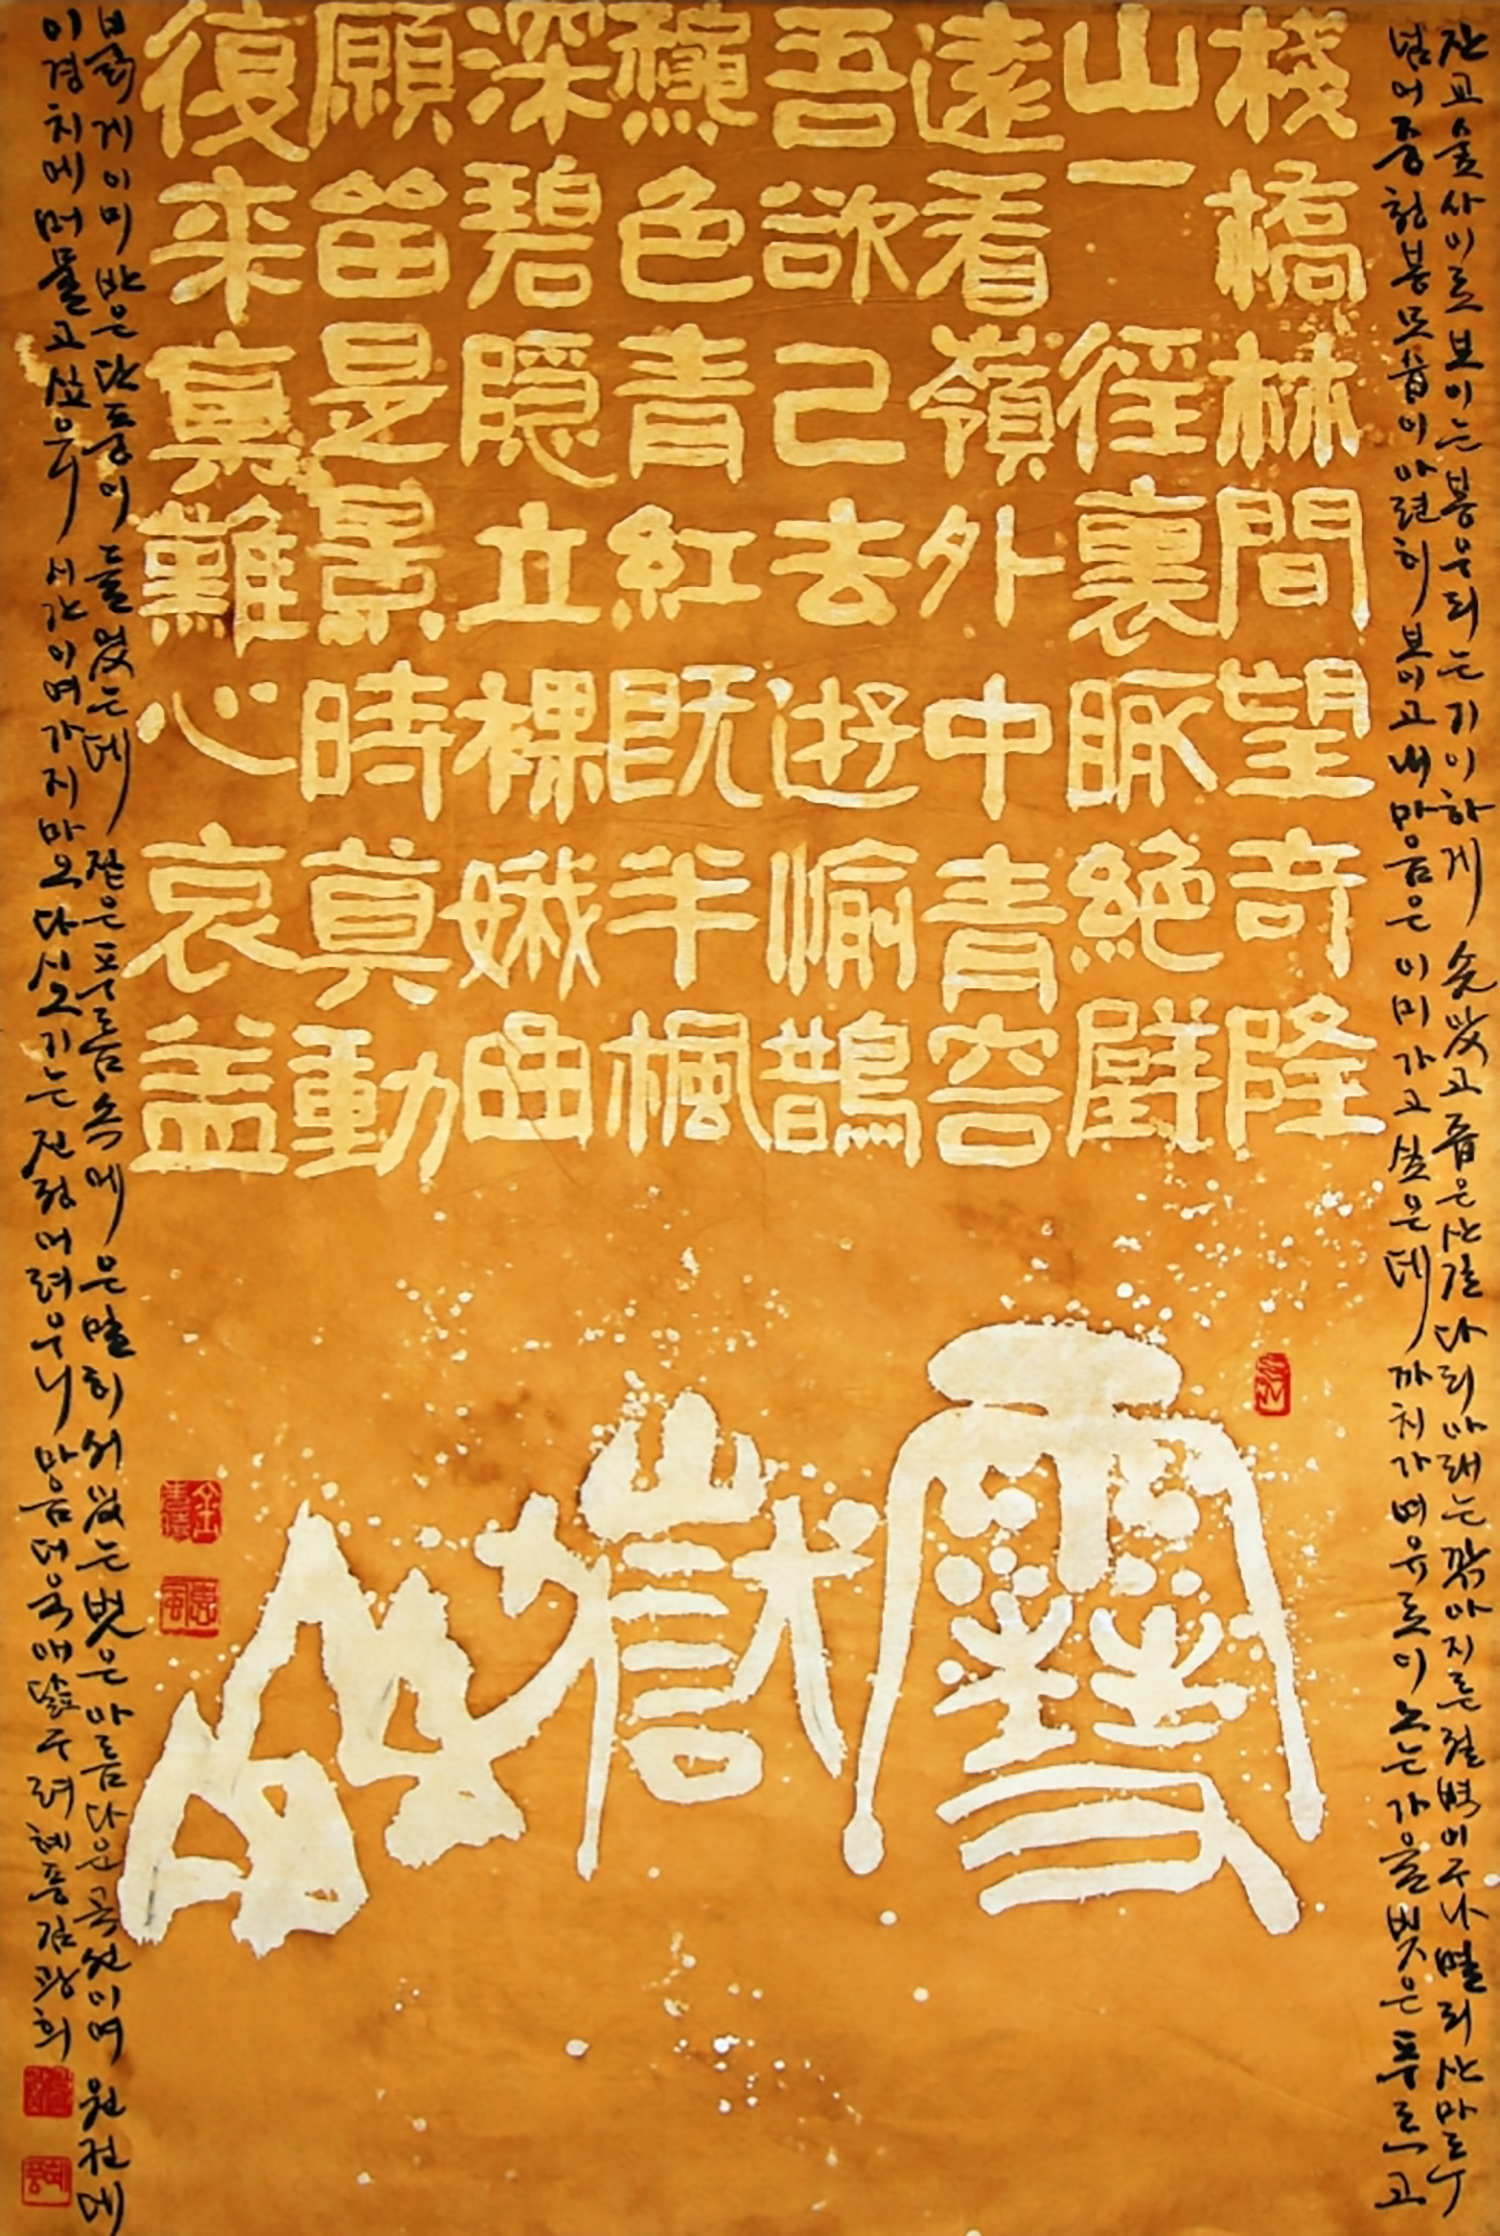 잔교 숲 사이로 보이는 봉우리는 기이하게 솟았고 좁은 산길 다리 아래는 깎아지른 절벽이구나 멀리 산마루
넘어 중청봉 모습이 아련히 보이고 내 마음은 이미 가고 싶은데 까치가 노는 가을 빛은 푸르고
棧橋林間望奇隆
山一徑裏眽絶
遠看嶺外中青容
吾欲己去遊愉鵲
龝色青紅既半楓
深碧隱立裸曲
願留是景時莫動
復来難心哀益
雪嶽
붉게 이미 반은 단풍이 들었는데 짙은 푸르름 속에 은밀히 서있는 벗은 아름다운 곡선이며 원컨데
이 경치에 머물고 싶으니 시간이며 가지 마오 다시 오기는 전혀 어려우니 마음 더욱 애닲구려 혜풍 김광희